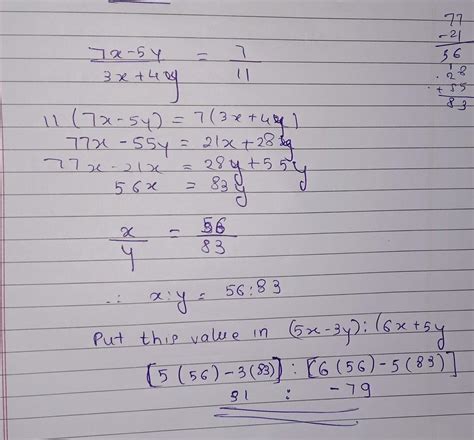 77
-21
56
1
28
+55
83
7x-5y = 7
3x+4y 11
11 (7x-5y) = 7(3x+4y)
77x-55y = 21x+28y
77x-21x = 28y+55y
56x = 83y
x = 56
y 83
∴ x:y = 56:83
Put this value in (5x-3y):(6x+5y
[5(56)-3(83)]:[6(56)-5(83)]
31 : -79